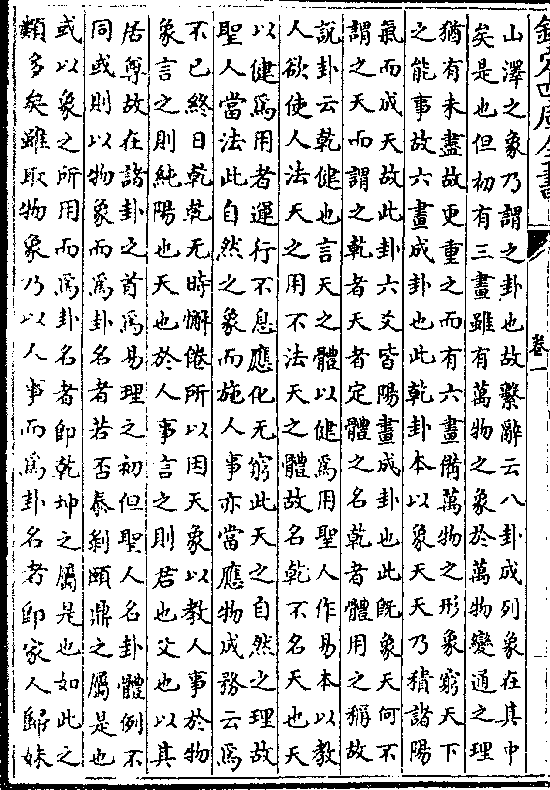 欽定四庫全書
卷一
山澤之象乃謂之卦也故繫辭云八卦成列象在其中
矣是也但初有三畫雖有萬物之象於萬物變通之理
猶有未盡故更重之而有六畫備萬物之形象窮天下
之能事故六畫成卦也此乾卦本以象天天乃積諸陽
氣而成天故此卦六爻皆陽畫成卦也此既象天何不
謂之天而謂之乾者天者定體之名乾者體用之稱故
說卦云乾健也言天之體以健爲用聖人作易本以教
人欲使人法天之用不法天之體故名乾不名天也天
以健爲用者運行不息應化无窮此天之自然之理故
聖人當法此自然之象而施人事亦當應物成務云爲
不已終日乾乾无時懈倦所以因天象以教人事於物
象言之則純陽也天也於人事言之則君也父也以其
居尊故在諸卦之首爲易理之初但聖人名卦體例不
同或則以物象而爲卦名者若否泰剝頤鼎之屬是也
或以象之所用而爲卦名者即乾坤之屬是也如此之
類多矣雖取物象乃以人事而爲卦名者即家人歸妹